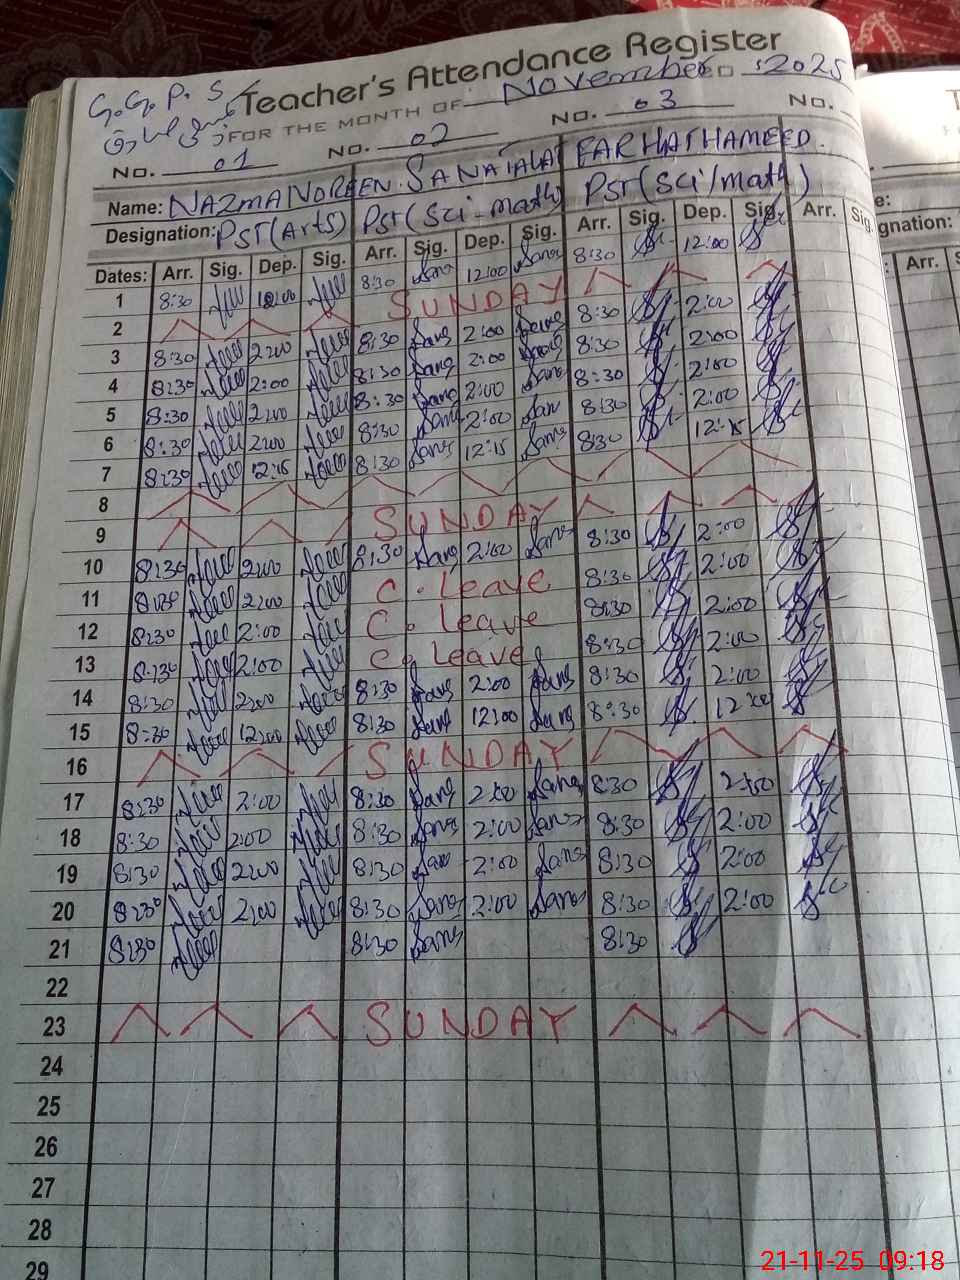 Teacher's Attendance Register
G.G.P.S
FOR THE MONTH OF November 2025
No. 01 No. 02 No. 03 No.
Name: NAZMA NOREEN SANA TALAT FARHAT HAMEED.
Designation: PST (Arts) PST (Sci-math) PST (Sci/math)
Dates: Arr. Sig. Dep. Sig. Arr. Sig. Dep. Sig. Arr. Sig. Dep. Sig. Arr. Sig.
1 8:30 12:00 8:30 Sana 12:00 Sana 8:30 12:00
2 SUNDAY
3 8:30 2:00 8:30 Sana 2:00 Sana 8:30 2:00
4 8:30 2:00 8:30 Sana 2:00 Sana 8:30 2:00
5 8:30 2:00 8:30 Sana 2:00 Sana 8:30 2:00
6 8:30 2:00 8:30 Sana 2:00 Sana 8:30 2:00
7 8:30 12:15 8:30 Sana 12:15 Sana 8:30 12:15
8
9 SUNDAY
10 8:30 2:00 8:30 Sana 2:00 Sana 8:30 2:00
11 8:30 2:00 C. Leave 8:30 2:00
12 8:30 2:00 C. Leave 8:30 2:00
13 8:30 2:00 C. Leave 8:30 2:00
14 8:30 2:00 8:30 Sana 2:00 Sana 8:30 2:00
15 8:30 12:00 8:30 Sana 12:00 Sana 8:30 12:00
16 SUNDAY
17 8:30 2:00 8:30 Sana 2:00 Sana 8:30 2:00
18 8:30 2:00 8:30 Sana 2:00 Sana 8:30 2:00
19 8:30 2:00 8:30 Sana 2:00 Sana 8:30 2:00
20 8:30 2:00 8:30 Sana 2:00 Sana 8:30 2:00
21 8:30 8:30 Sana 8:30
22
23 SUNDAY
24
25
26
27
28
29
21-11-25 09:18